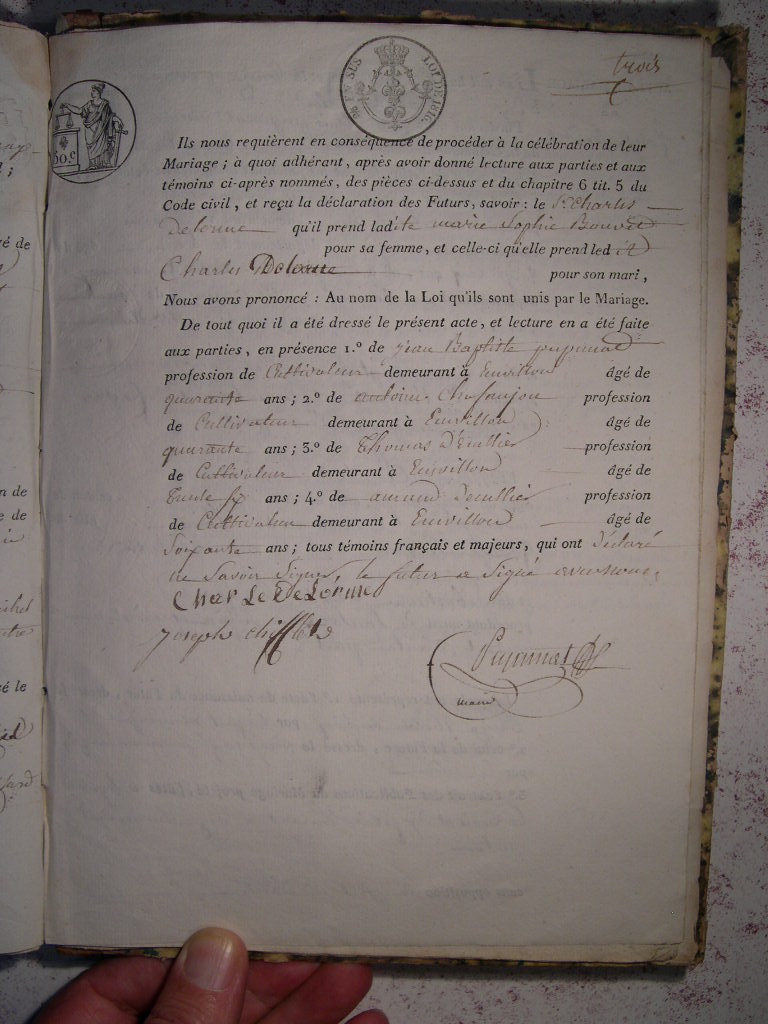 trois
LOI DE 1816.
50. C
Ils nous requièrent en conséquence de procéder à la célébration de leur
Mariage ; à quoi adhérant, après avoir donné lecture aux parties et aux
témoins ci-après nommés, des pièces ci-dessus et du chapitre 6 tit. 5 du
Code civil, et reçu la déclaration des Futurs, savoir : le Sr. Charles
Delorme qu'il prend ladite marie Sophie Bouvet
pour sa femme, et celle-ci qu'elle prend led it
Charles Delorme pour son mari,
Nous avons prononcé : Au nom de la Loi qu'ils sont unis par le Mariage.
De tout quoi il a été dressé le présent acte, et lecture en a été faite
aux parties, en présence 1.º de jean Baptiste
profession de Cultivateur demeurant à Emvillon âgé de
quarante ans ; 2.º de antoine profession
de Cultivateur demeurant à Emvillon âgé de
quarante ans ; 3.º de Thomas profession
de Cultivateur demeurant à Emvillon âgé de
ans ; 4.º de amand profession
de Cultivateur demeurant à Emvillon âgé de
Soixante ans ; tous témoins français et majeurs, qui ont déclaré
ne Savoir Signer, le futur a Signé avec nous.
CharLe DeLorme
joseph
maire